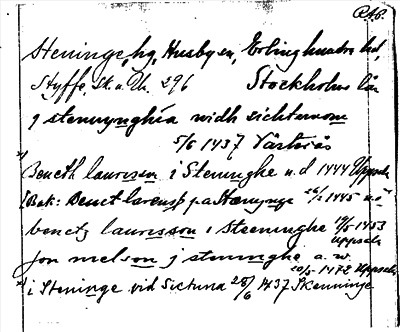 RA6.
Steninge, hg, Husby sn, Erlinghundra hd,
Styffe, Sk. u. Un. 296 Stockholms län
j stenwynghia widh sichtunom
5/6 1437 Västerås
x) Beneth laurissn i Steninghe u.d 1444 Uppsala
[Bak: Benct larensß pa Stenynge 26/2 1445 u.o
benctz laurisson i Steeninghe 19/5 1453
Uppsala
jon melson j stenwnghe a. w.
20/5 1472 Uppsala
x) i Steninge vid Sictuna 25/6 1437 Skenninge